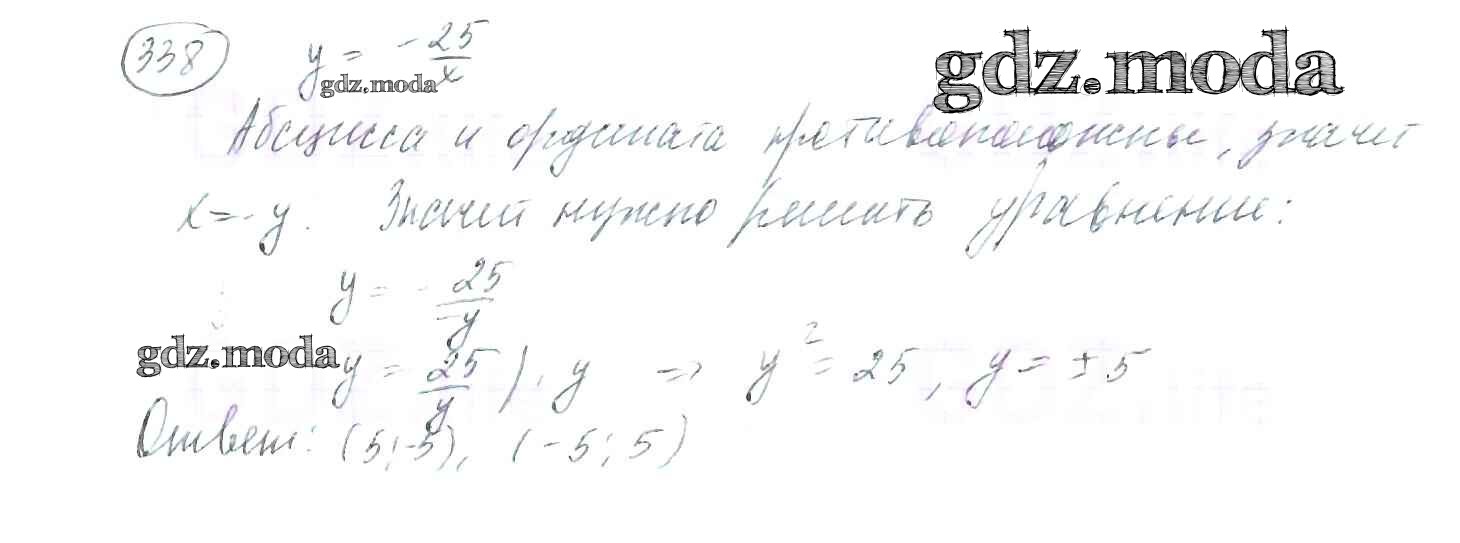 338 y = -25/x
gdz.moda
gdz.moda
Абсцисса и ордината противоположны, значит
x = -y. Значит нужно решить уравнение:
y = - 25/-y
gdz.moda
y = 25/y ) · y => y² = 25, y = ± 5
Ответ: (5; -5), (-5; 5)